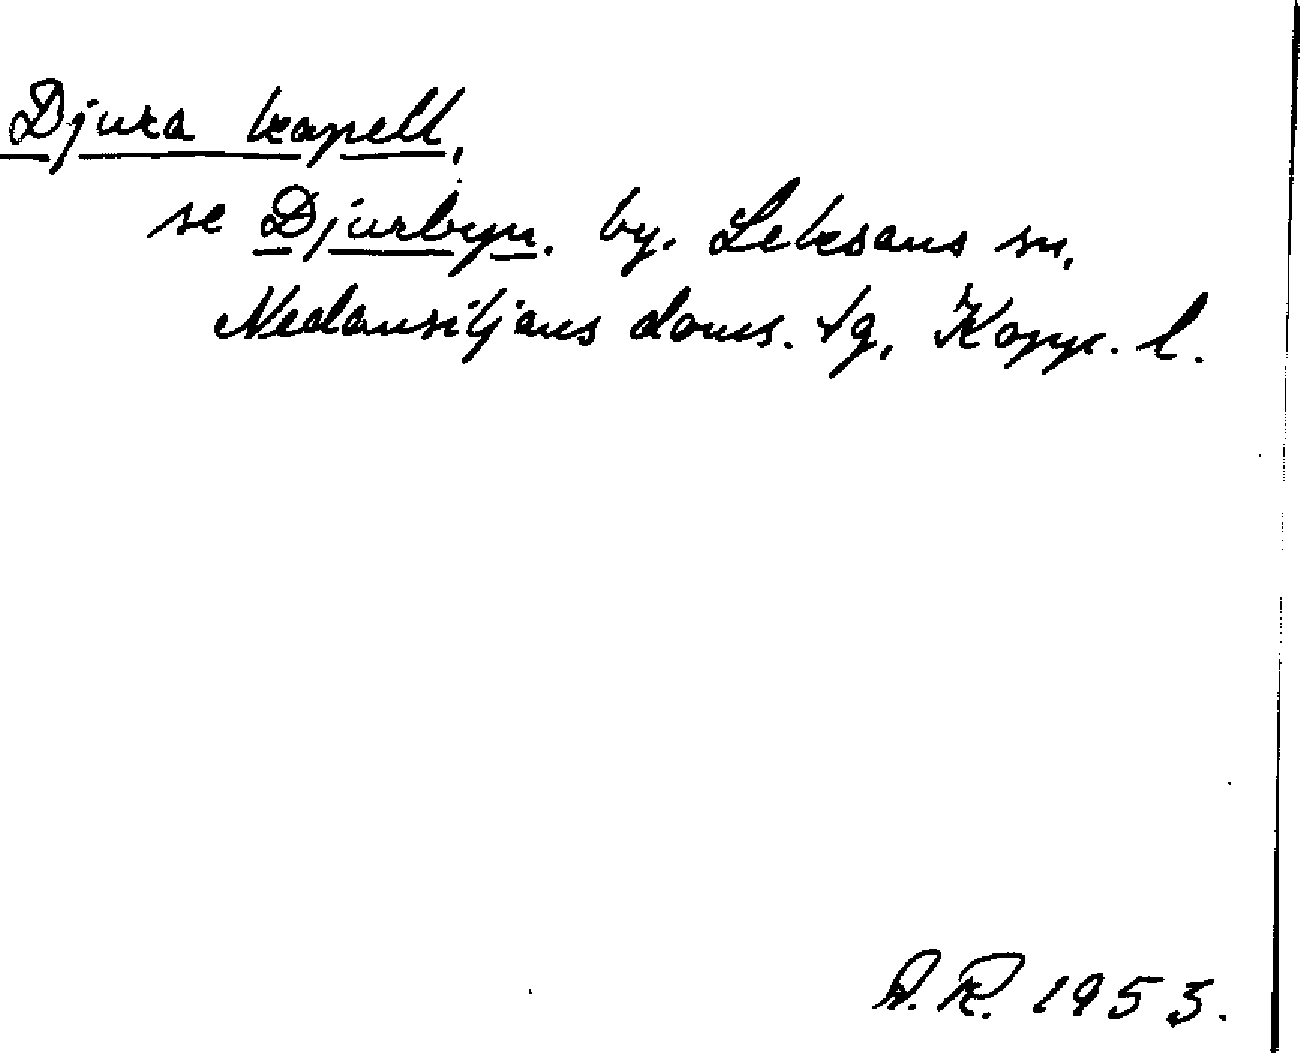 Djura kapell,
se Djurbyn. by. Leksans sn.
Nedansiljans doms. tg, Kopp. l.
R. 1953.